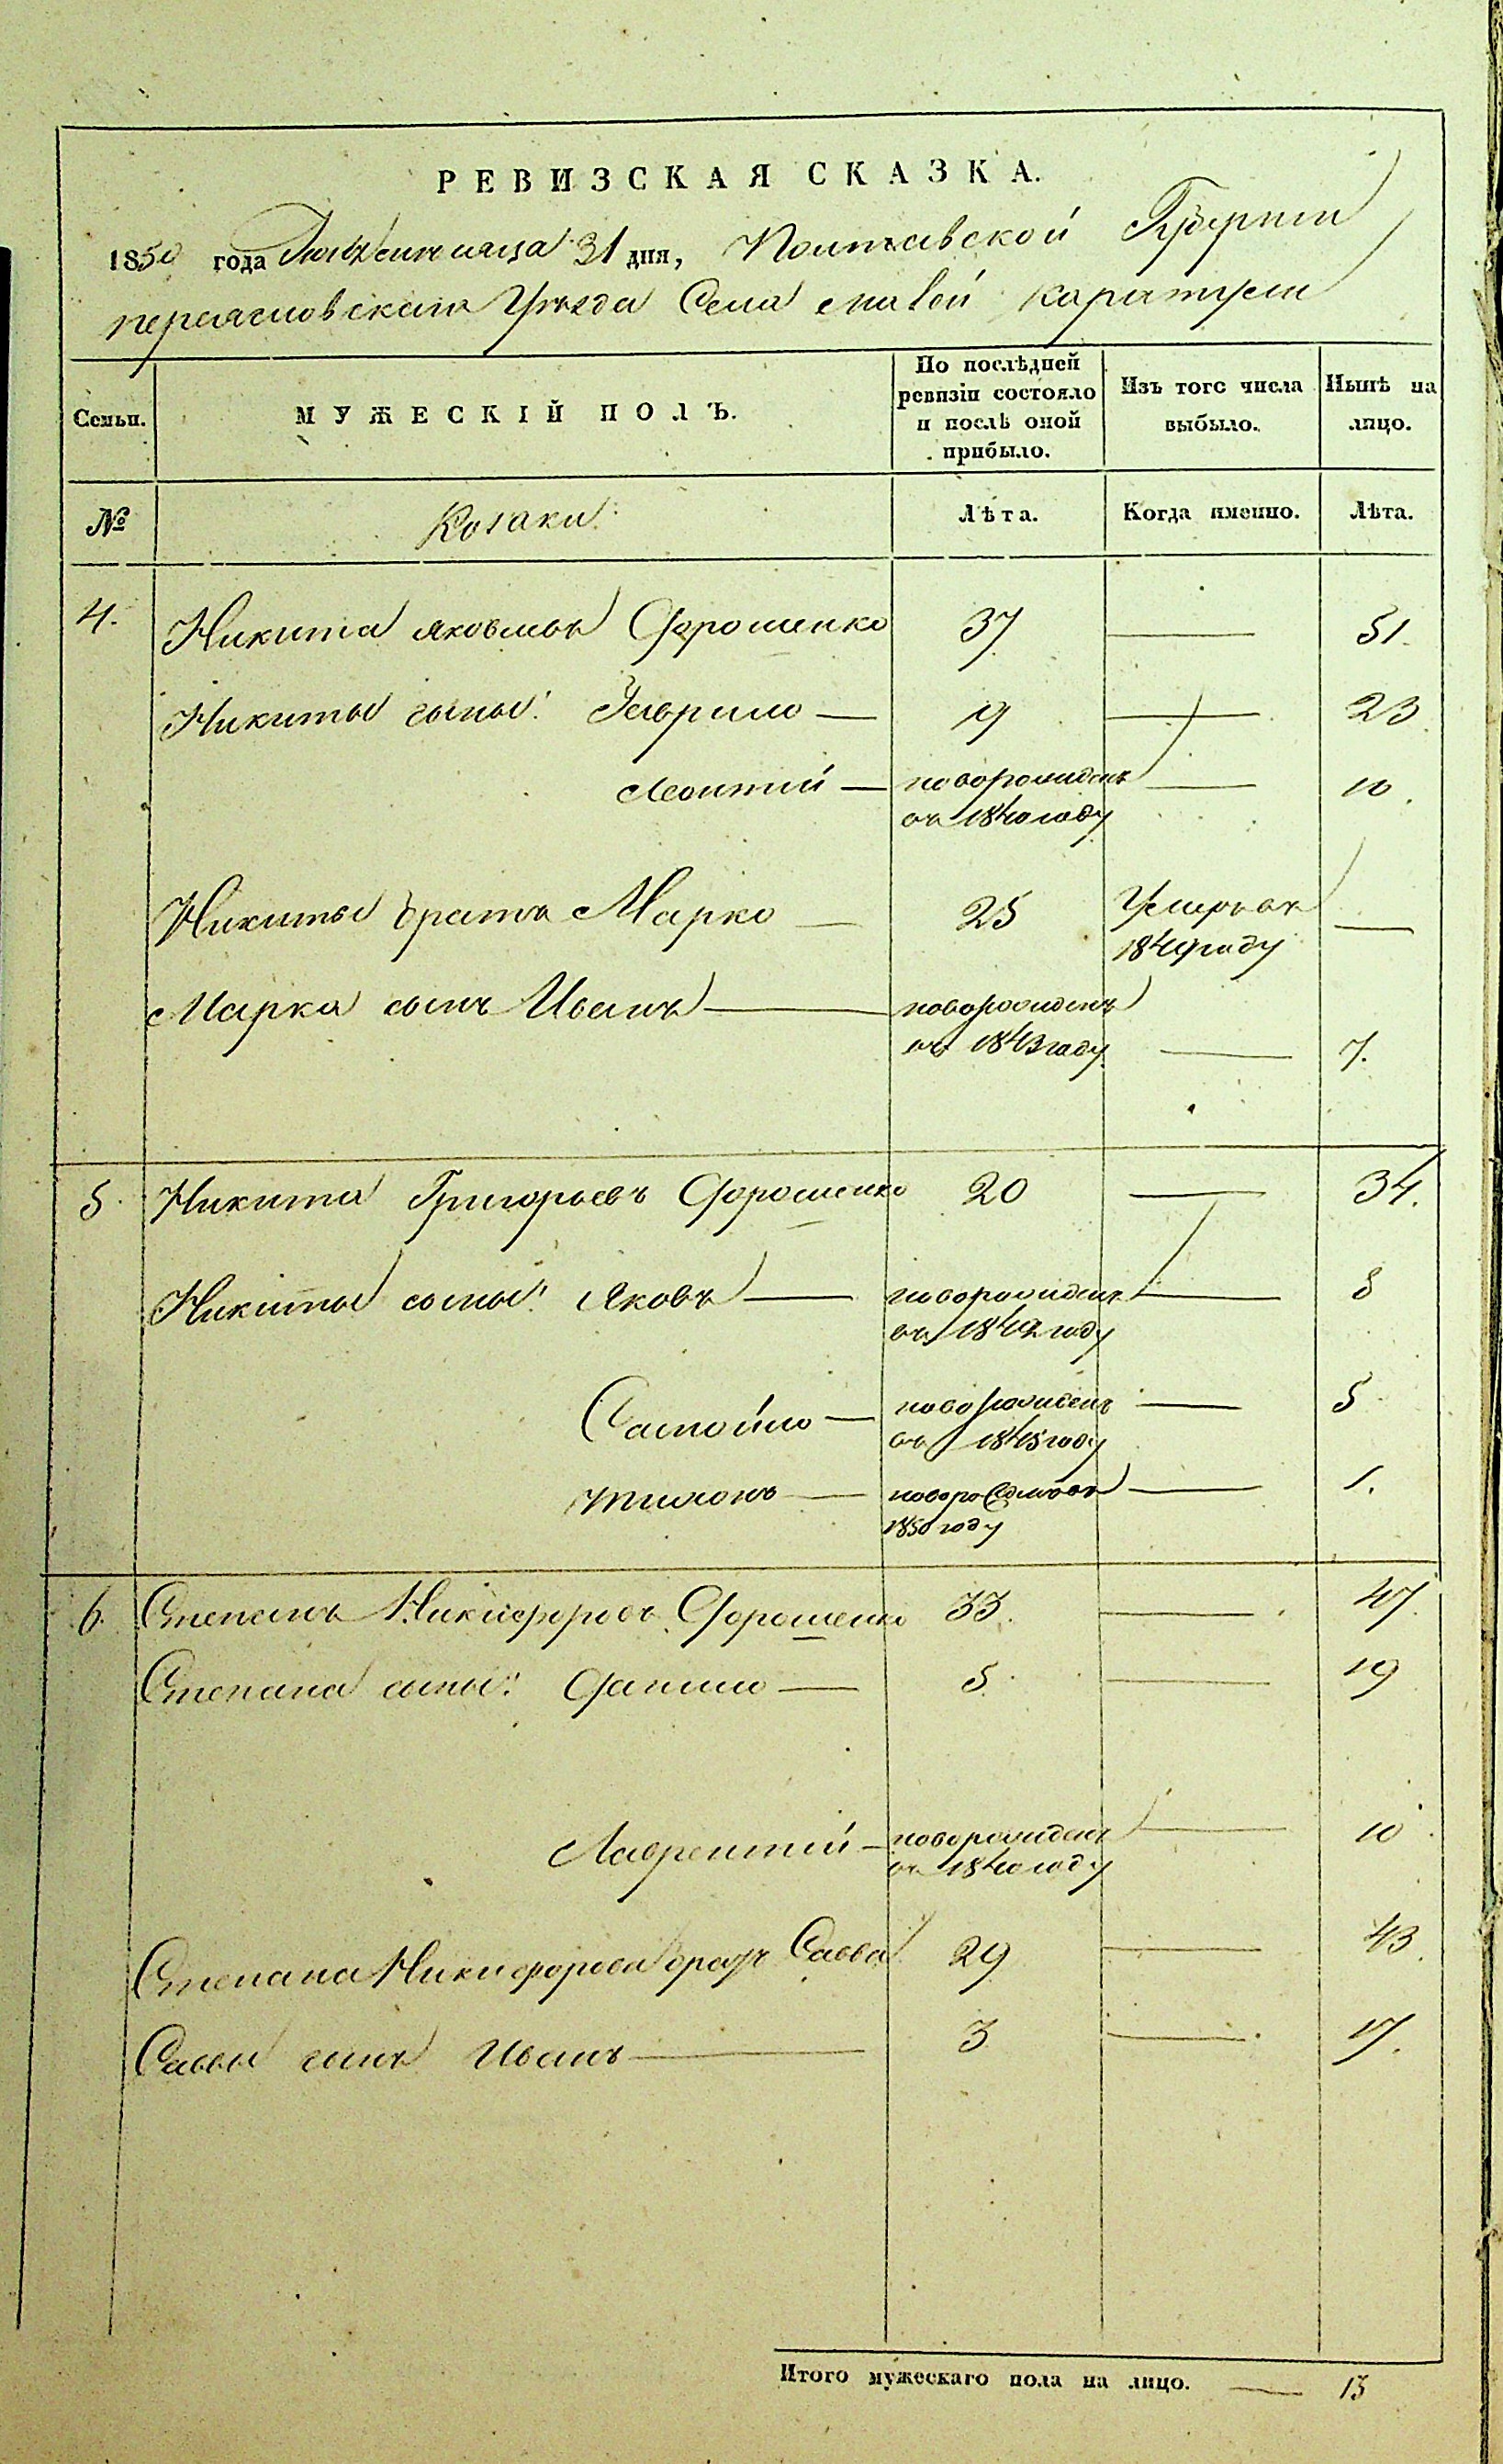 РЕВИЗСКАЯ СКАЗКА.
1850 года месяца 31 дня, Полтавской Губерніи
переяславскаго Уѣзда Села малой каратули
Семьи.
МУЖЕСКІЙ ПОЛЪ.
По послѣдней ревизіи состояло и послѣ оной прибыло.
Изъ того числа выбыло.
Нынѣ на лицо.
№ Козаки Лѣта. Когда именно. Лѣта.
4. Никита яковлевъ Дорошенко 37 — 51.
Никиты сыны: Гаврило — 19 — 23
Леонтий — новорожденъ — 10.
въ 1840 году
Никиты братъ Марко — 25 Умеръ въ —
1849 году
Марка сынъ Иванъ — новорожденъ
въ 1843 году — 7.
5. Никита Григорьевъ Дорошенко 20 — 34.
Никиты сыны: Яковъ — новорожденъ — 8
въ 1842 году
Самойло — новорожденъ — 5
въ 1845 году
тимонъ — новорожденъ въ — 1.
1850 году
6. Степанъ Никифоровъ Дорошенко 33. — 47.
Степана сыны: Данило — 5. — 19
Лаврентий — новорожденъ — 10.
въ 1840 году
Степана Никифорова братъ Савва 29 — 43.
Саввы сынъ Иванъ — 3 — 17.
Итого мужескаго пола на лицо. — 13